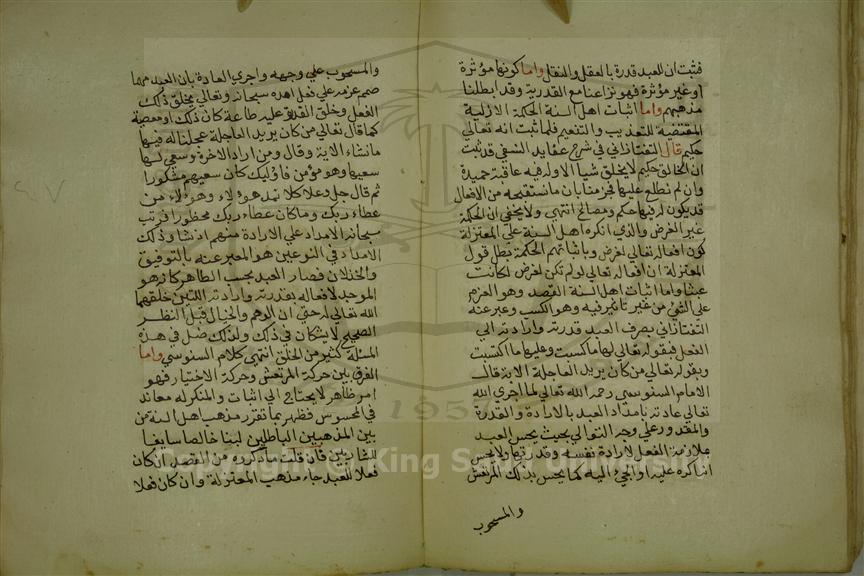 فثبت ان للعبد قدرة بالعقل والنقل واما كونها مؤثرة
او غير مؤثرة فهو نزاعنا مع القدرية وقد ابطلنا
مذهبهم واما اثبات اهل السنة الحكمة الازلية
المقتضية للتعذيب والتنعيم فلما ثبت انه تعالى
حكيم قال التفتازاني في شرح عقايد النسفي قد ثبت
ان الخالق حكيم لا يخلق شيأ الا وله فيه عاقبة حميدة
وان لم نطلع عليها فجزمنا بان ما نستقبحه من الافعال
قد يكون له فيها حكم ومصالح انتهى ولا يخفى ان الحكمة
غير الغرض والذي انكره اهل السنة على المعتزلة
كون افعاله تعالى لغرض وباثباتهم الحكمة بطل قول
المعتزلة ان افعاله تعالى لو لم تكن لغرض لكانت
عبثا واما اثبات اهل السنة القصد وهو العزم
على الشئ من غير تاثير فيه وهو الكسب وعبر عنه
التفتازاني بصرف العبد قدرته وارادته الى
الفعل فبقوله تعالى لها ما كسبت وعليها ما اكتسبت
وبقوله تعالى من كان يريد العاجلة الاية قال
الامام السنوسي رحمه الله تعالى لما اجرى الله
تعالى عادته بامداد العبد بالارادة والقدرة
والمقدور على وجه التوالي بحيث يحس العبد
ملازمة الفعل لارادة نفسه وقدرتها ولا يحس
اكره عليه او الجئ اليه كما يحس بذلك المرتعش
والمسحوب
والمسحوب على وجهه واجرى العادة بان العبد مهما
صمم عزمه على فعل امده سبحانه وتعالى بخلق ذلك
الفعل وخلق القدرة عليه طاعة كان ذلك او معصية
كما قال تعالى من كان يريد العاجلة عجلنا له فيها
ما نشاء الاية وقال ومن اراد الاخرة وسعى لها
سعيها وهو مؤمن فاوليك كان سعيهم مشكورا
ثم قال جل وعلا كلا نمد هؤلاء وهؤلاء من
عطاء ربك وما كان عطاء ربك محظورا فرتب
سبحانه الامداد على الارادة منهم ان شا وذلك
الامداد في النوعين هو المعبر عنه بالتوفيق
والخذلان فصار العبد بحسب الظاهر كانه هو
الموجد لافعاله بقدرته وارادته اللتين خلقهما
الله تعالى له حتى ان الوهم والخيال قبل النظر
الصحيح لا يشكان في ذلك ولذلك ضل في هذه
المسئلة كثير من الخلق انتهى كلام السنوسي واما
الفرق بين حركة المرتعش وحركة الاختيار فهو
امر ظاهر لا يحتاج الى اثبات والمنكر له معاند
في المحسوس فظهر بما تقرر مذهب اهل السنة من
بين المذهبين الباطلين لبنا خالصا سايغا
للشاربين فان قلت ما تذكروه من القصد ان كان
فعلا للعبد جاء مذهب المعتزلة وان كان فعلا
Copyright © King Saud University
195